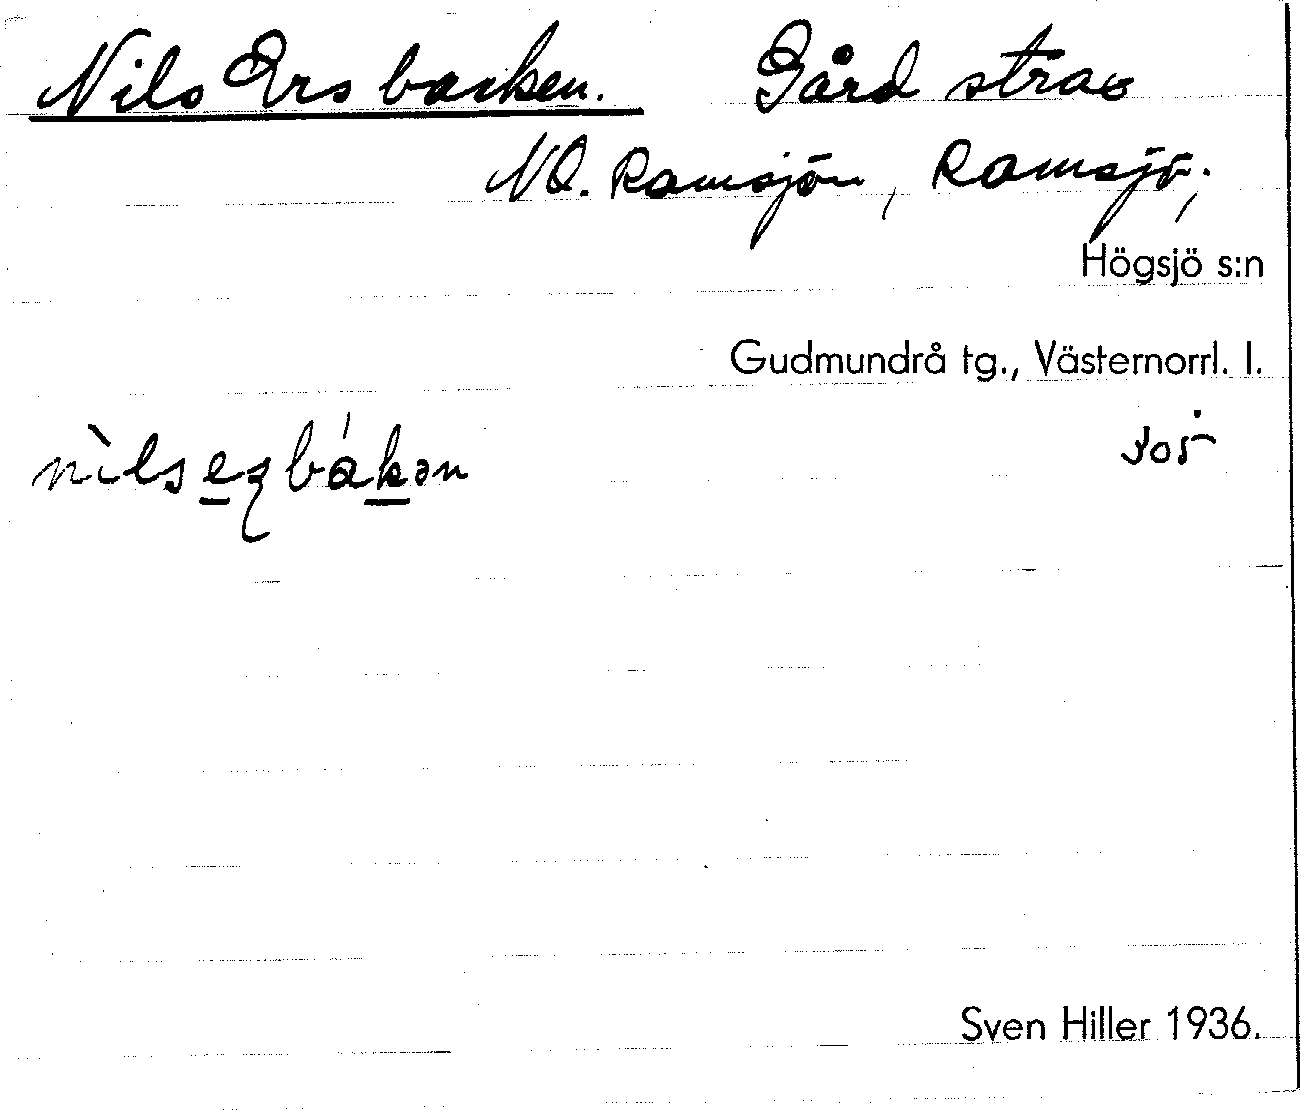 Nils Ers backen. Gård strax
NO. Ramsjön, Ramsjö;
Högsjö s:n
Gudmundrå tg., Västernorrl. l.
Sven Hiller 1936.